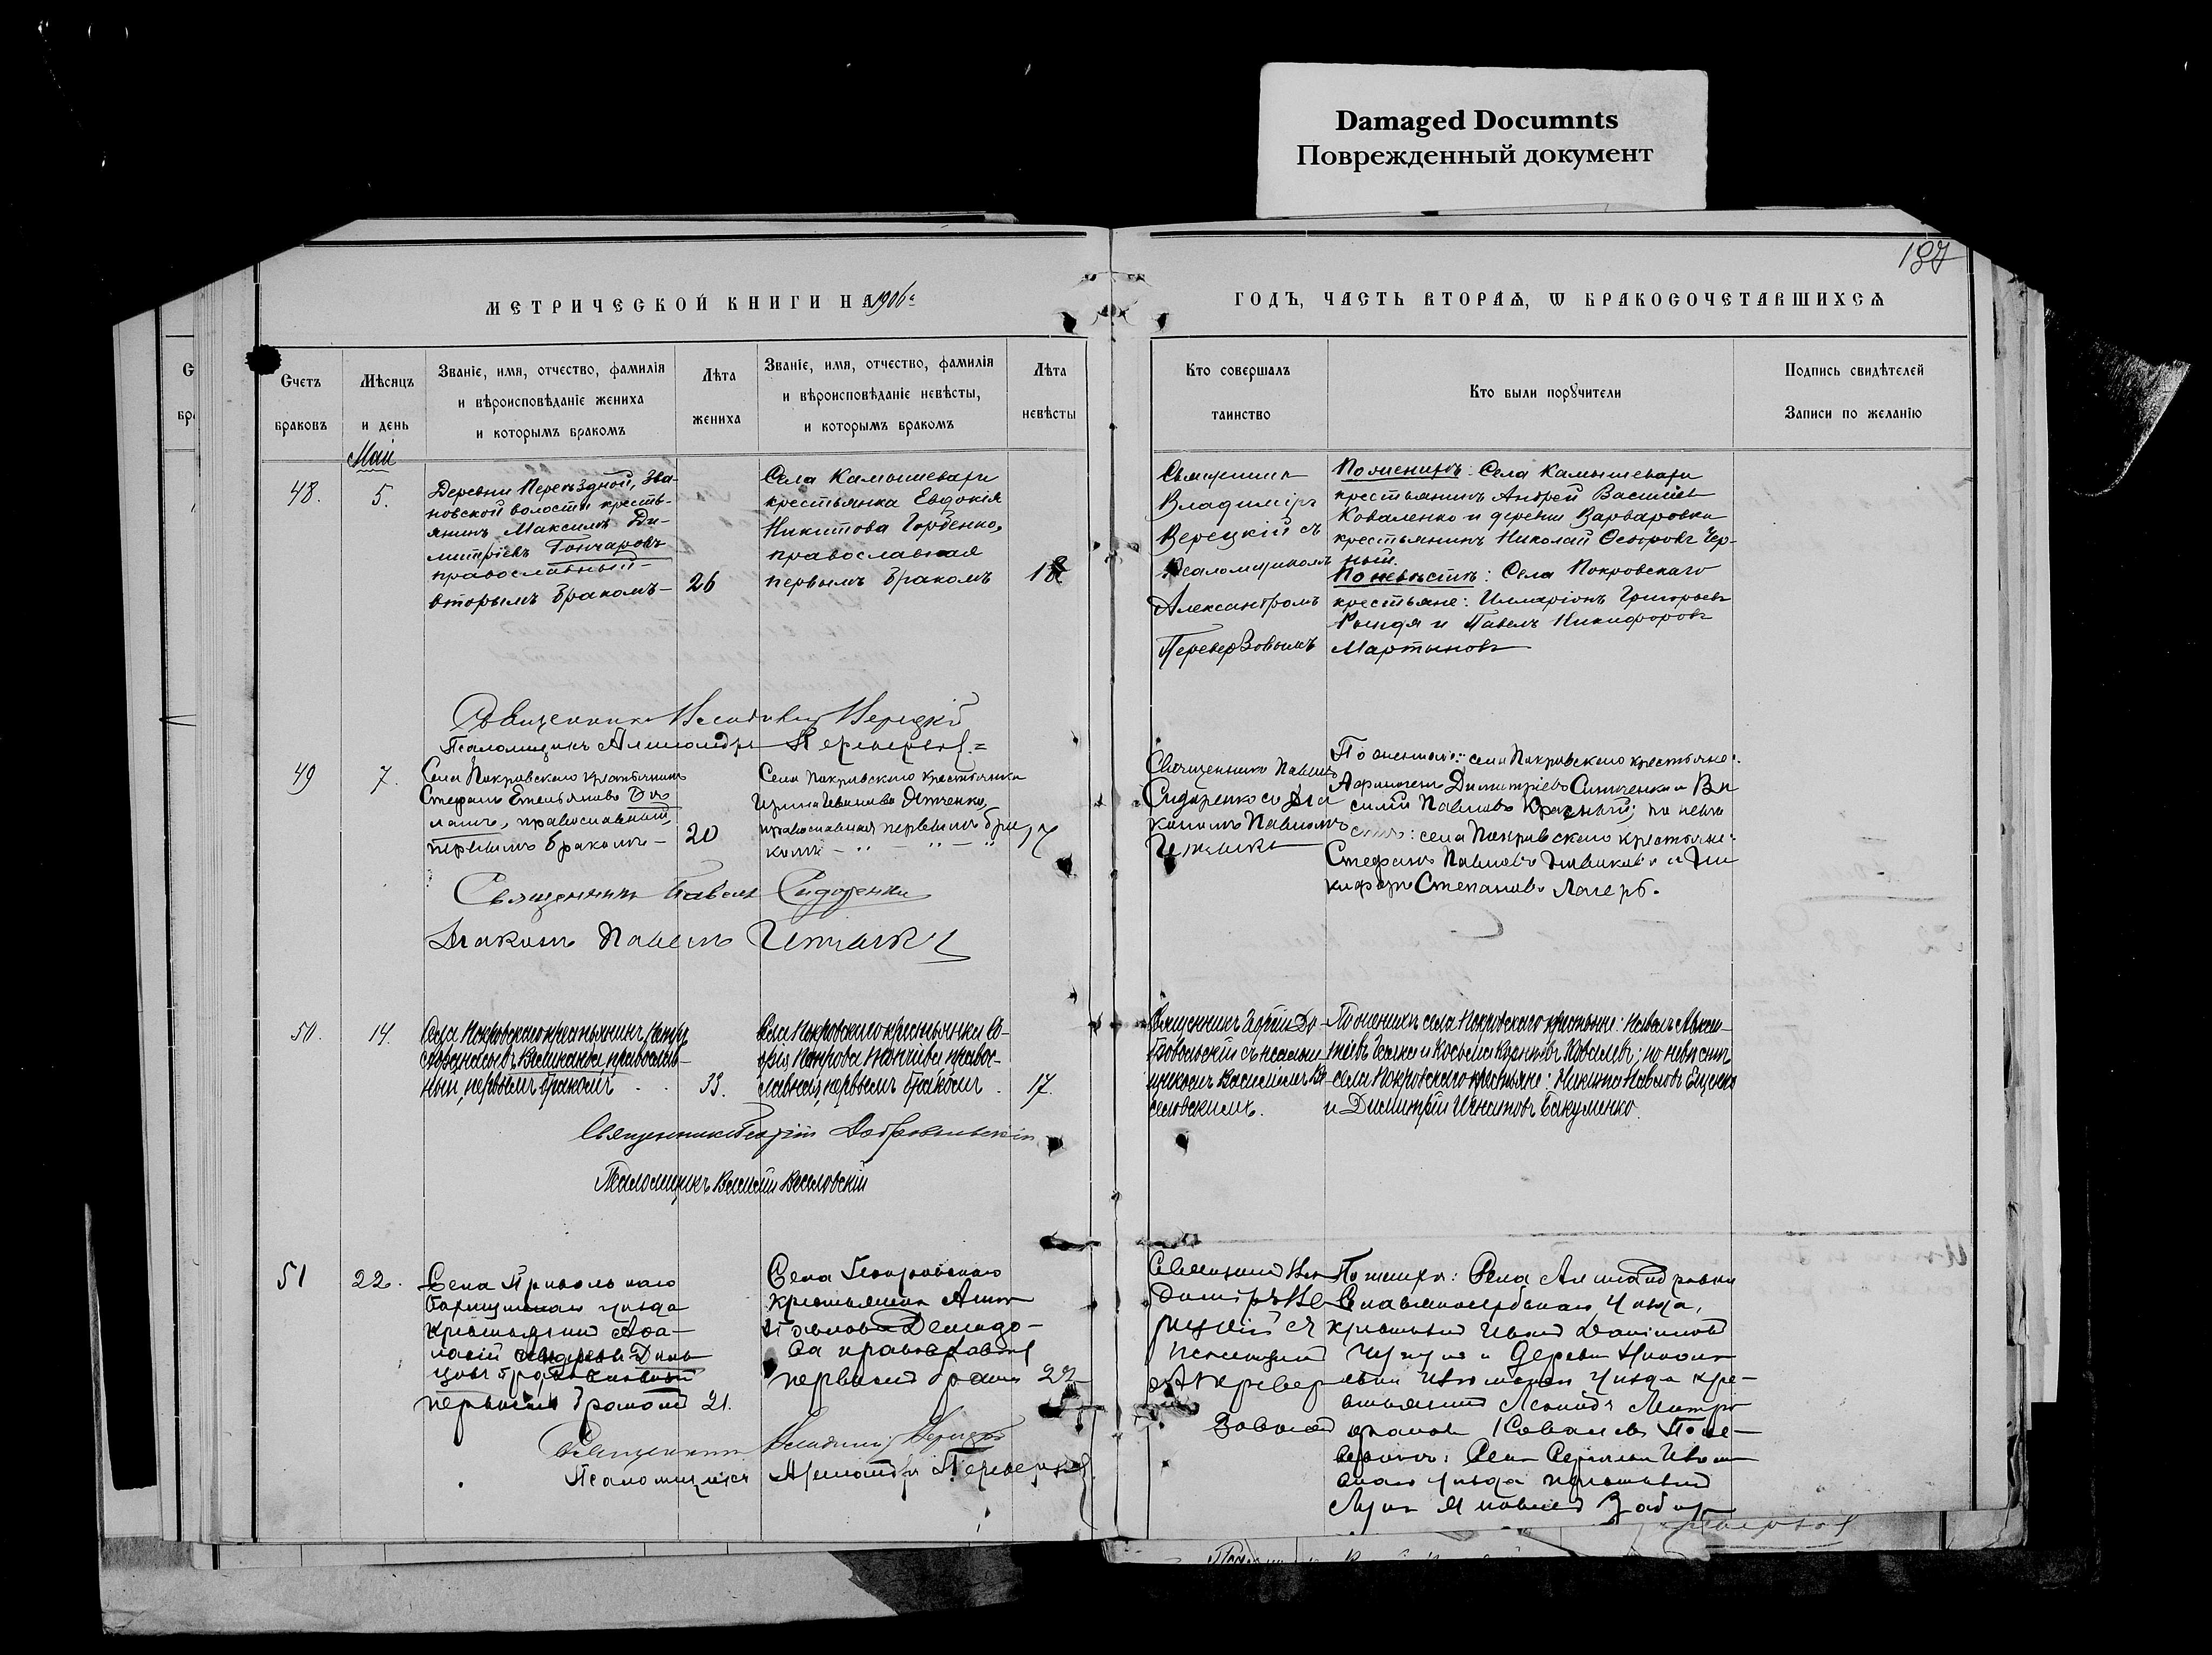 Damaged Documnts
Поврежденный документ
187
МЕТРИЧЕСКОЙ КНИГИ НА 1906 г
ГОДЪ, ЧАСТЬ ВТОРАЯ, Ѡ БРАКОСОЧЕТАВШИХСЯ
Счетъ браковъ
Мѣсяцъ и день
Званіе, имя, отчество, фамилія
и вѣроисповѣданіе жениха
и которымъ бракомъ
Лѣта жениха
Званіе, имя, отчество, фамилія
и вѣроисповѣданіе невѣсты,
и которымъ бракомъ
Лѣта невѣсты
Кто совершалъ
таинство
Кто были порꙋчители
Подпись свидѣтелей
Записи по желанію
Май
48.
5.
Деревни Переѣздной, Зва-
новской волости кресть-
янинъ Максимъ Ди-
митріевъ Гончаровъ
православный
вторымъ бракомъ
26
Села Камышевахи
крестьянка Евдокія
Никитова Горбенко,
православная
первымъ бракомъ
18
Священникъ
Владиміръ
Верецкій съ
Псаломщикомъ
Александромъ
Переверзовымъ
По женихѣ: Села Камышевахи
крестьянинъ Андрей Васильевъ
Коваленко и деревни Варваровки
крестьянинъ Николай Ѳедоровъ Чер-
ный.
По невѣстѣ: Села Покровскаго
крестьяне: Илларіонъ Григорьевъ
и Павелъ Никифоровъ
Мартыновъ
Священникъ Владиміръ Верецкій
Псаломщикъ Александръ Переверзовъ
49
7.
Села Покровскаго крестьянинъ
Стефанъ Емельяновъ
православный,
первымъ бракомъ
20
Села Покровскаго крестьянка
Ирина Иванова
православная первымъ бра
комъ
17
Священникъ Павелъ
Сидоренко со Діа
кономъ Павломъ
По женихѣ: села Покровскаго крестьяне:
Димитріевъ и Ва
силій Павловъ Красный; по невѣ
стѣ: села Покровскаго крестьяне:
Стефанъ Павловъ и Ни
кифоръ Степановъ Лагеръ.
Священникъ Павелъ Сидоренко
Діаконъ Павелъ
50.
14.
Села Покровскаго крестьянинъ Петръ
православ-
ный, первымъ бракомъ
33.
Села Покровскаго крестьянка Со-
фія Петрова правос-
лавная, первымъ бракомъ
17.
Священникъ Георгій До-
бровольскій съ псалом-
щикомъ Василіемъ Ве-
селовскимъ.
По женихѣ села Покровскаго крестьяне: Павелъ
и Косьма Ковалевъ; по невѣстѣ
села Покровскаго крестьяне: Никита Павловъ Ещенко
и Димитрій Игнатовъ Бакуменко.
Священникъ Георгій Добровольскій
Псаломщикъ Василій Веселовскій
51
22.
Села Привольнаго
Бахмутскаго уѣзда
крестьянинъ Аѳа-
насій
православный
первымъ бракомъ
21.
Села Покровскаго
крестьянка Анна
Павлова Демидо-
ва православная
первымъ бракомъ
22
Священникъ Вла
диміръ Ве
рецкій съ
псаломщикомъ
А Перевер
зовымъ
По женихѣ: Села Александровки
Славяносербскаго уѣзда,
крестьянинъ Иванъ Даниловъ
и Деревни
Изюмскаго уѣзда кре-
стьянинъ Леонидъ Митро
фановъ Ковалевъ По не-
вѣстѣ: Села Изюм
скаго уѣзда крестьянинъ
Священникъ Владиміръ Верецкій
Псаломщикъ Александръ Переверзовъ